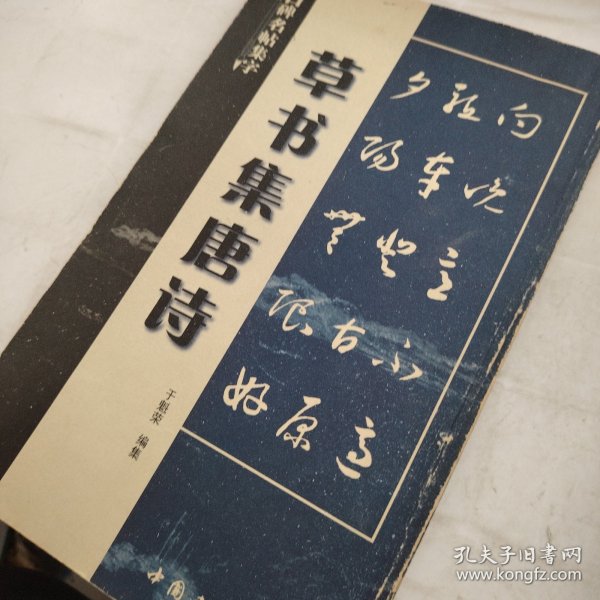 碑名帖集字
草书集唐诗
于魁荣 编集
向晚意不適
驅車登古原
夕陽無限好
中国
孔夫子旧书网
www.kongfz.com